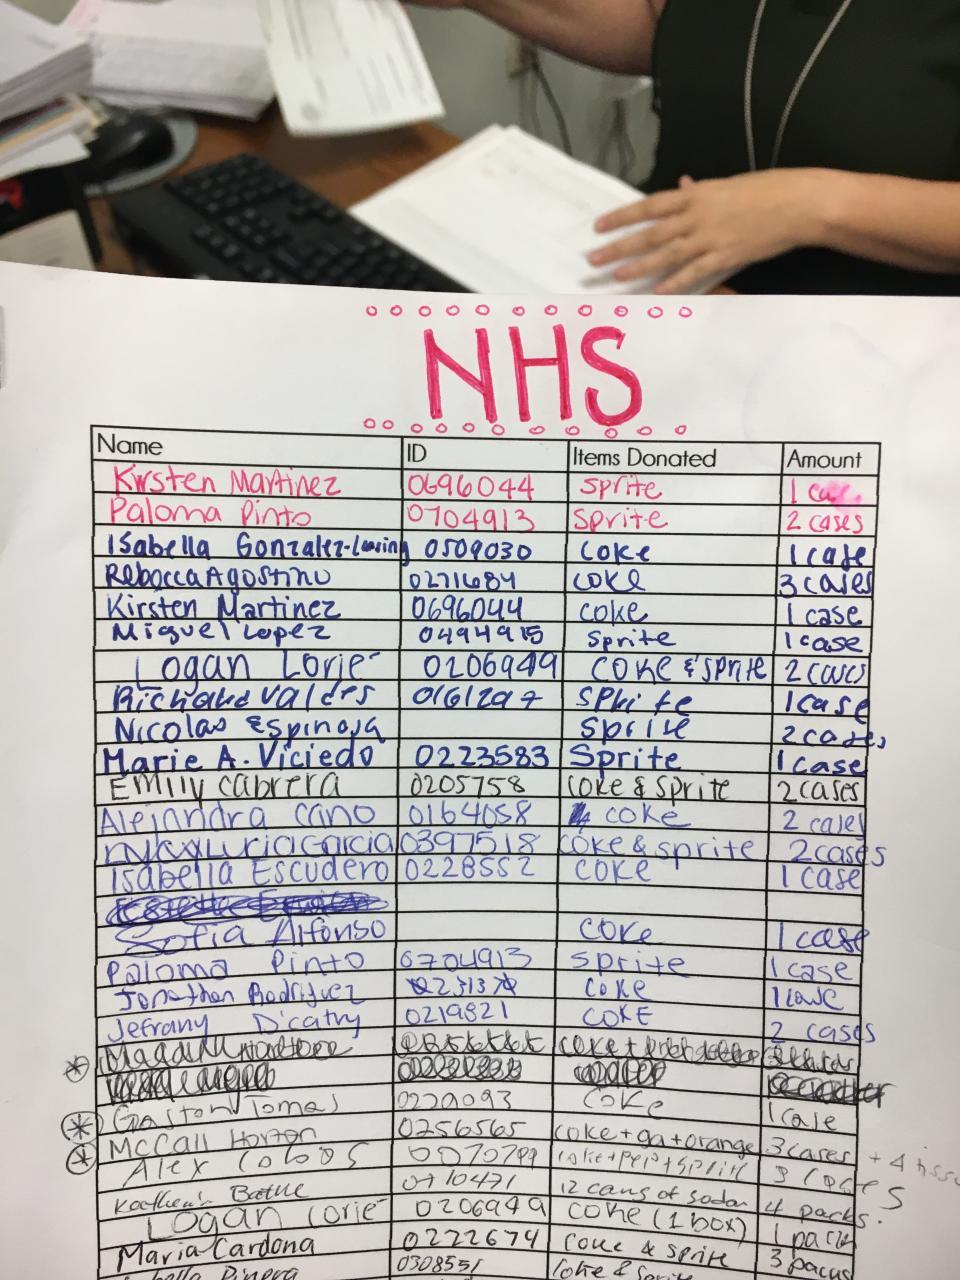 NHS
Name ID Items Donated Amount
Kirsten Martinez 0696044 Sprite 1
Paloma Pinto 0704913 Sprite 2 cases
Isabella 0509030 Coke 1 case
Rebecca Agostino 0271684 Coke 3 cases
Kirsten Martinez 0696044 Coke 1 case
Miguel Lopez 0494915 Sprite 1 case
Logan Lorie 0206949 Coke & Sprite 2 cases
Richard Valdes 0161297 Sprite 1 case
Nicolas Espinosa Sprite 2 cases
Marie A. Viciedo 0223583 Sprite 1 case
Emily Cabrera 0205758 Coke & Sprite 2 cases
Alejandra Cano 0164058 coke 2
0397518 coke & sprite 2 cases
Isabella Escudero 0228552 COKE 1 case
Sofia Alfonso COKE 1 case
Paloma Pinto 0704913 Sprite 1 case
Jonathan Rodriguez Coke
Jefrany D'catry 0219821 COKE 2 cases
Gaston Tomas 0220093 Coke 1 case
McCall Horton 0256565 Coke + ga + orange 3 cases + 4
Alex Cobos 0070799 3
Bathe 0710471 12 cans of sodas 4 packs.
Logan Lorie 0206949 Coke (1 box) 1 pack
Maria Cardona 0222674 Coke & sprite 3 packs
0308551 Coke & Sprite